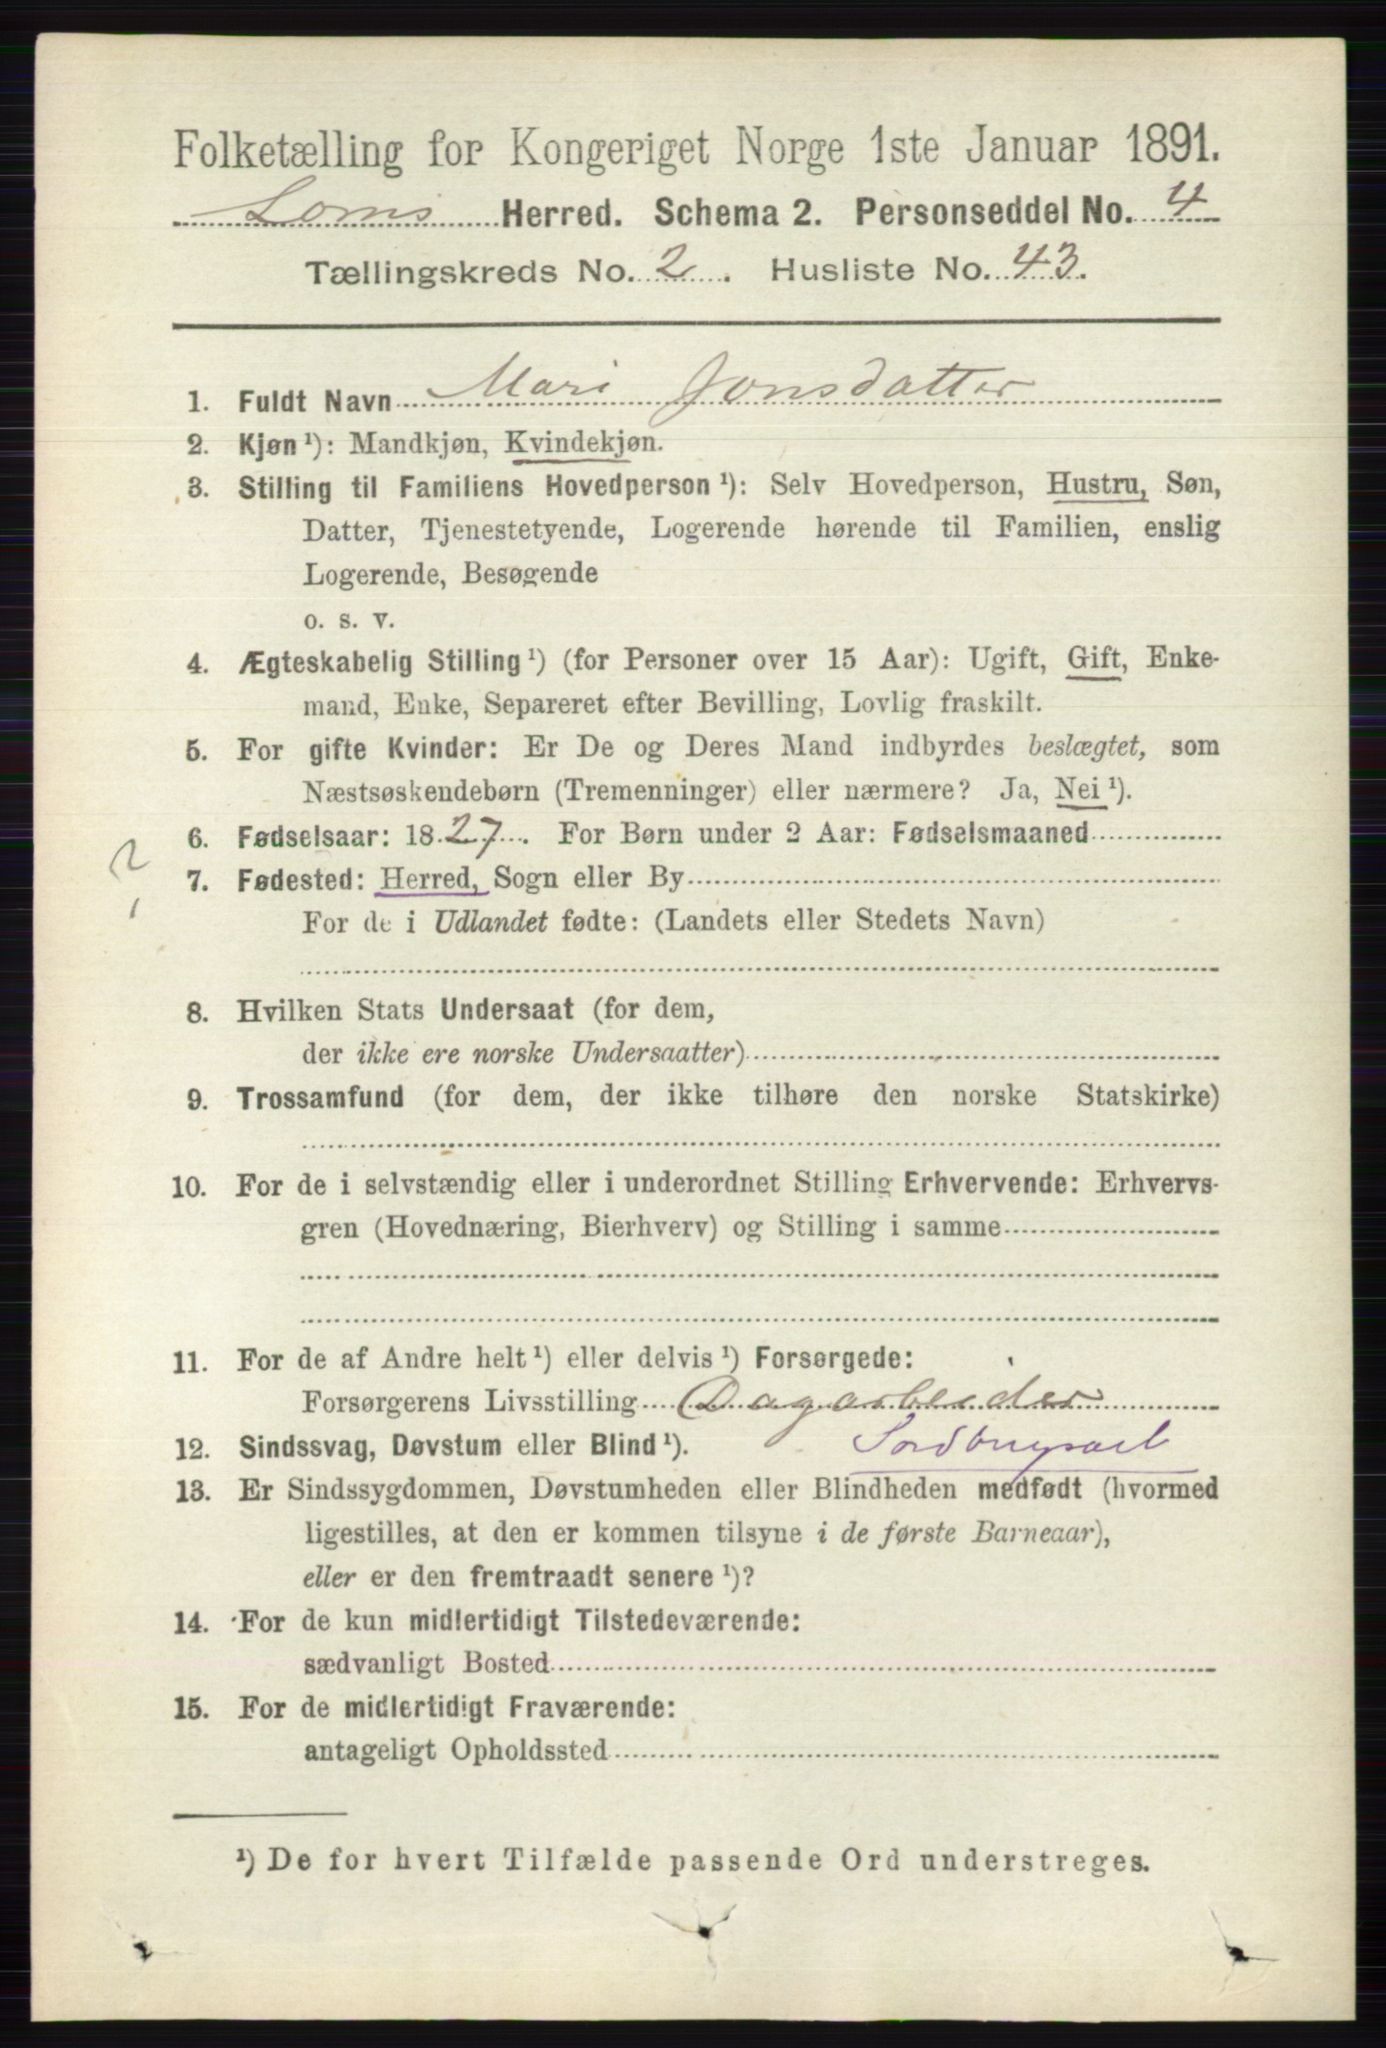 Folketælling for Kongeriget Norge 1ste Januar 1891.
Loms Herred. Schema 2. Personseddel No. 4
Tællingskreds No. 2. Husliste No. 43.
1. Fuldt Navn Mari Jonsdatter
2. Kjøn ¹): Mandkjøn, Kvindekjøn.
3. Stilling til Familiens Hovedperson ¹): Selv Hovedperson, Hustru, Søn,
Datter, Tjenestetyende, Logerende hørende til Familien, enslig
Logerende, Besøgende
o. s. v.
4. Ægteskabelig Stilling ¹) (for Personer over 15 Aar): Ugift, Gift, Enke-
mand, Enke, Separeret efter Bevilling, Lovlig fraskilt.
5. For gifte Kvinder: Er De og Deres Mand indbyrdes beslægtet, som
Næstsøskendebørn (Tremenninger) eller nærmere? Ja, Nei ¹).
6. Fødselsaar: 1827. For Børn under 2 Aar: Fødselsmaaned
?
7. Fødested: Herred, Sogn eller By
For de i Udlandet fødte: (Landets eller Stedets Navn)
8. Hvilken Stats Undersaat (for dem,
der ikke ere norske Undersaatter)
9. Trossamfund (for dem, der ikke tilhøre den norske Statskirke)
10. For de i selvstændig eller i underordnet Stilling Erhvervende: Erhvervs-
gren (Hovednæring, Bierhverv) og Stilling i samme
11. For de af Andre helt ¹) eller delvis ¹) Forsørgede:
Forsørgerens Livsstilling Dagarbeider
12. Sindssvag, Døvstum eller Blind ¹).
13. Er Sindssygdommen, Døvstumheden eller Blindheden medfødt (hvormed
ligestilles, at den er kommen tilsyne i de første Barneaar),
eller er den fremtraadt senere ¹)?
14. For de kun midlertidigt Tilstedeværende:
sædvanligt Bosted
15. For de midlertidigt Fraværende:
antageligt Opholdssted
¹) De for hvert Tilfælde passende Ord understreges.